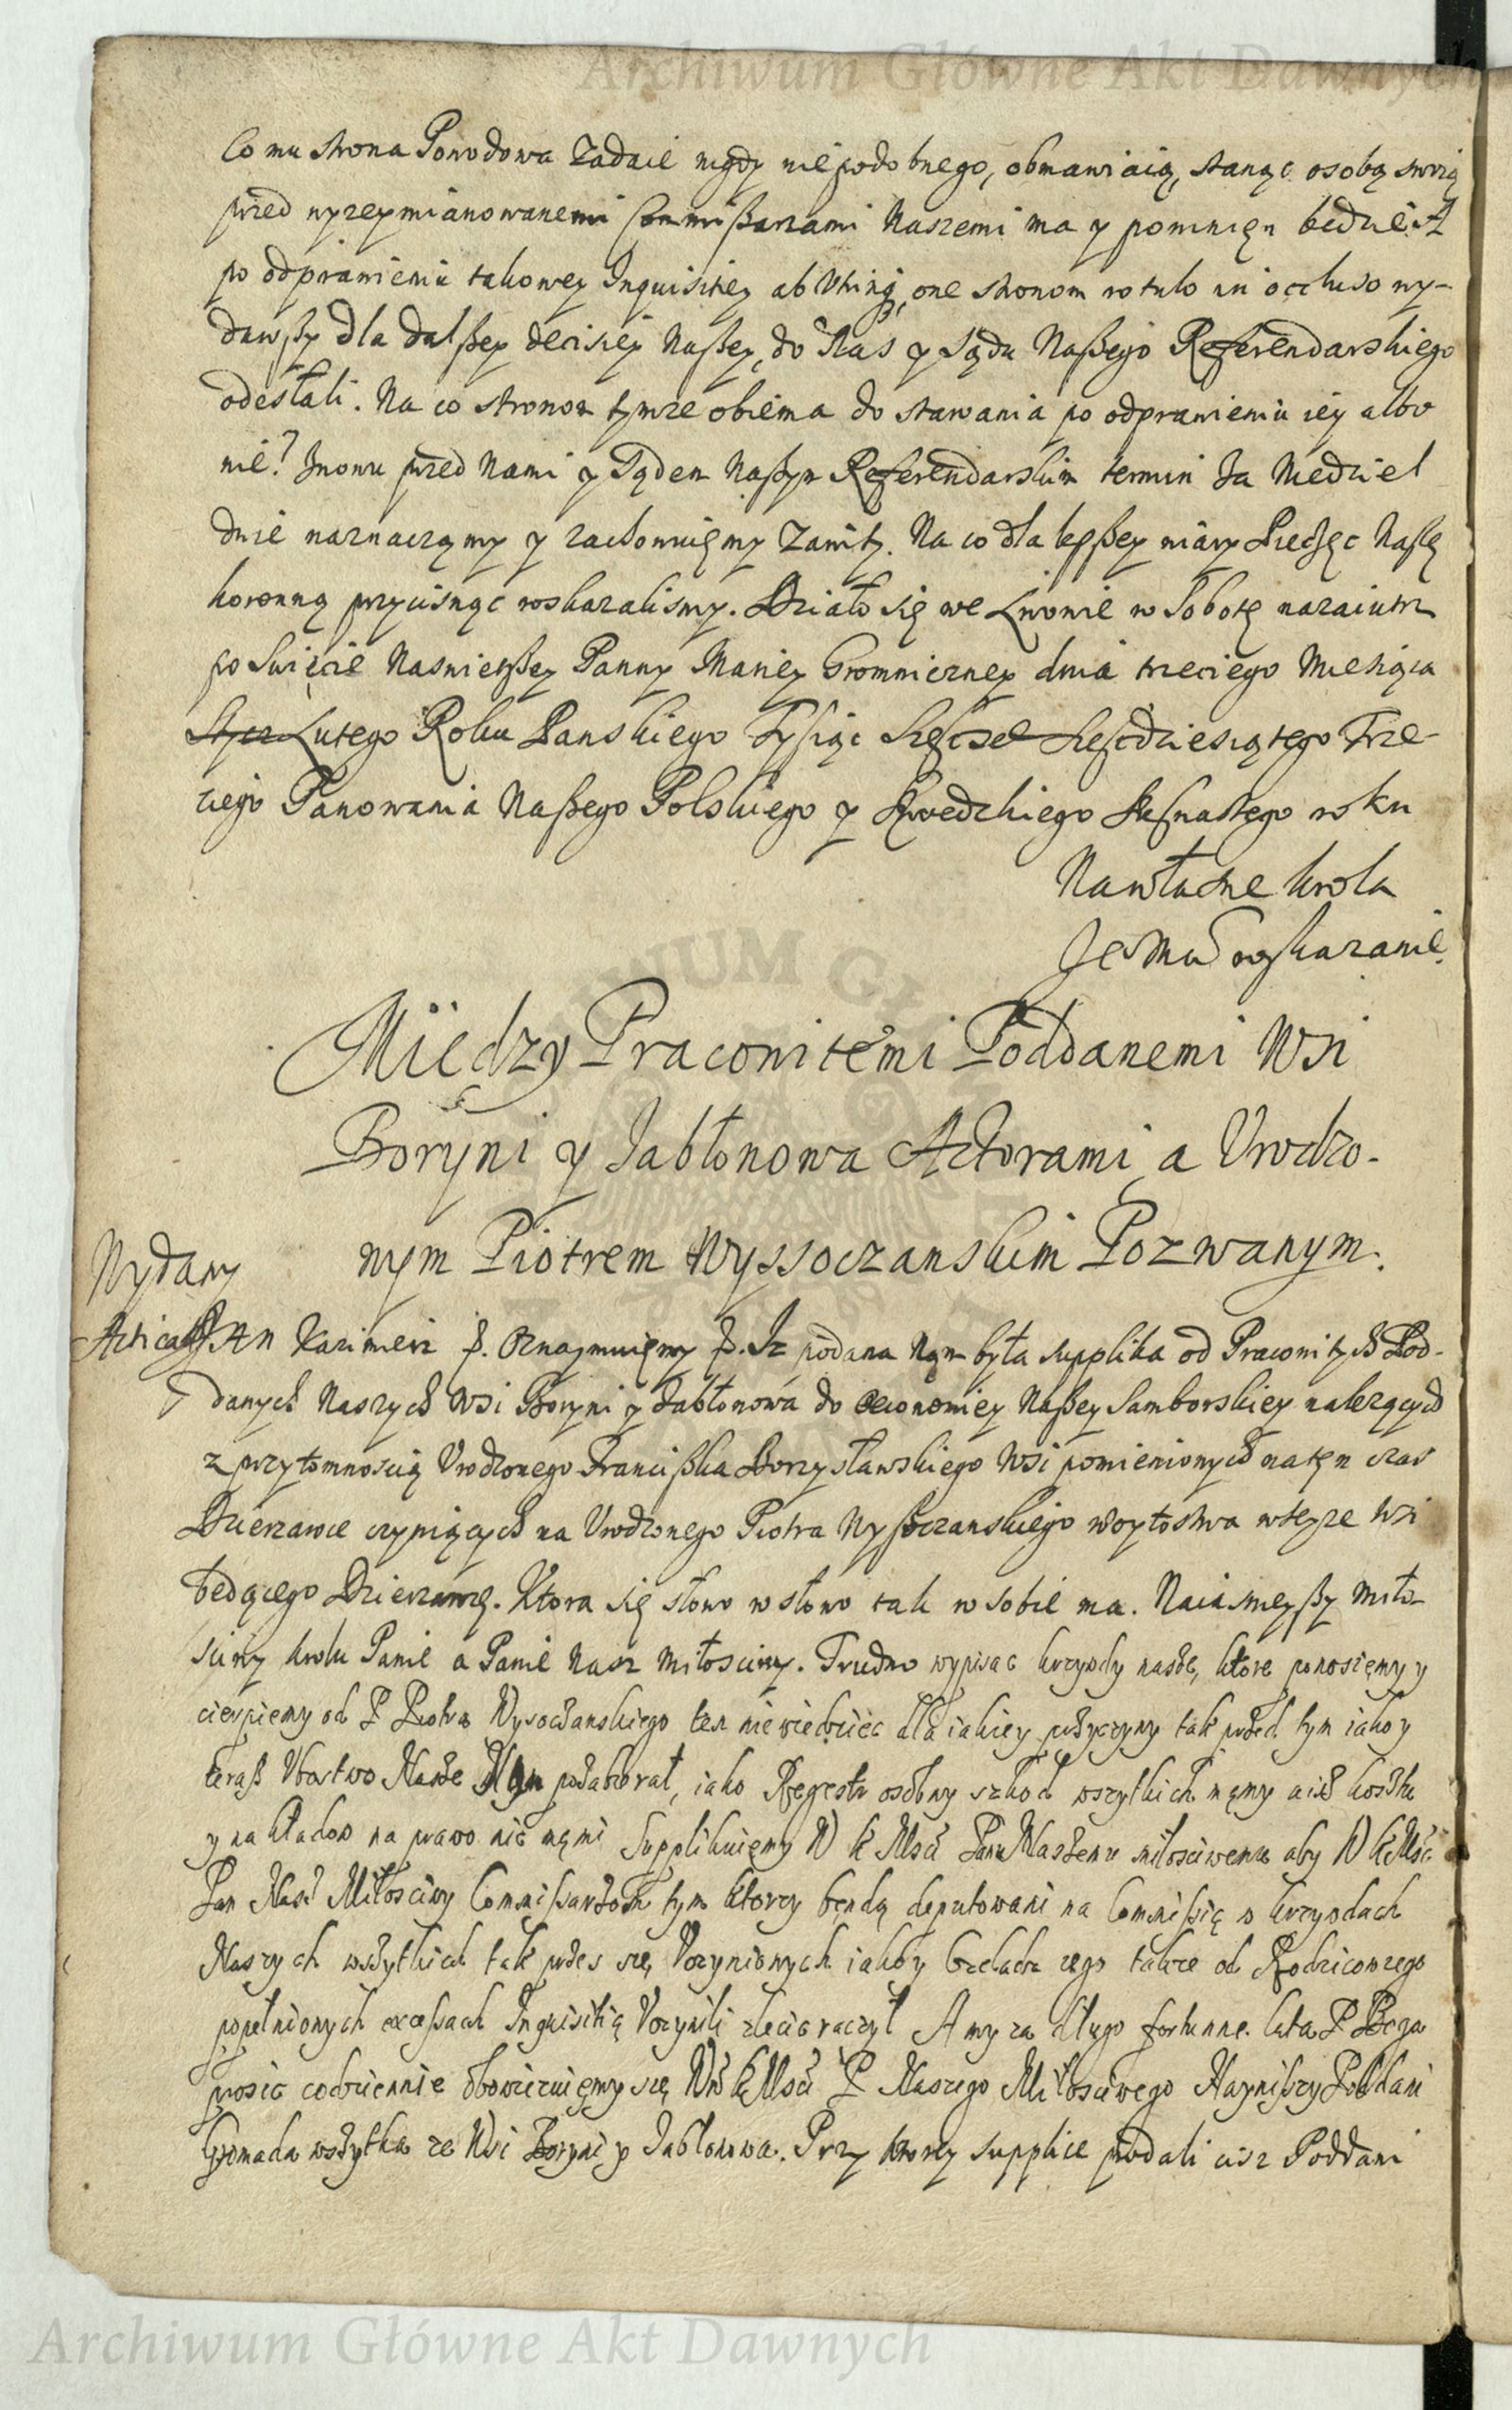 Archiwum Główne Akt Dawnych
Co mu strona Powodowa zadaie nigdy niepodobnego, obmawiaią, stanąc osobą swoią
przed wyzeymianowanemi Commißarzami Naszemi ma y powinięn będzie. A
po odprawieniu takowey Inquisitiey ab utrinq, one stronom rotulo in occluso wy-
dawßy dla dalßey decisiey Naßey, do Nas y Sądu Naßego Referendarskiego
odesłali. Na co stronom tymze obiema do stawania po odprawieniu iey albo
nie? znowu przed Nami y Sądem Naßym Referendarskim termin za Niedziel
dnie naznacząmy y zachowuięmy zawity. Na co dla lepßey wiary Pieczęc Naßę
koronną przycisnąc roskazalismy. Działo się we Lwowie w Sobotę nazaiutrz
po Swięcie Naswietßey Panny Mariey Gromniczney dnia trzeciego Miesiąca
Stycz Lutego Roku Panskiego Tysiąc Szescset Szescdziesiątego Trze-
ciego Panowania Naßego Polskiego y Szwedzkiego Szesnastego roku
Na własne krola
Je Mci roskazanie.
Między Pracowitemi Poddanemi Wsi
Boryni y Jabłonowa Actorami, a Urodzo-
nym Piotrem Wyssoczanskim Pozwanym.
Wydany
Jan Kazimierz p. Oznaymuięmy p. Iz podana Nąm była supplika od Pracowitych Pod-
danych Naszych Wsi Boryni y Jabłonowa do oeconomiey Naßey Samborskiey nalezących
z przytomnoscią Urodzonego Francißka Borzysławskiego Wsi pomienionych natęn czas
Dzierzawce czyniących na Urodzonego Piotra Wyßoczanskiego woytostwa wteyze Wsi
będącego Dzierzawcę. Ktora się słowo w słowo tak w sobie ma. Naiasnieyßy Miło-
sciwy krolu Panie a Panie Nasz Miłosciwy. Trudno wypisac krzywdy nasze, ktore ponosięmy y
cierpiemy od P Piotra Wysoczanskiego ten niewiedziec dla iakiey przyczyny tak przed tym iako y
teraß Ubostwo Nasze Nąm pozabierał, iako Regestr osobny szkod wszytkich mąmy
y nakładow na prawo nie mąmi Supplikuięmy W K Msci Panu Naszemu miłosciwemu aby W K Msc
Pan Nasz Miłosciwy Commißarzom tym ktorzy będą deputowani na Commißię o krzywdach
Naszych wszytkich tak przes się Uczynionych iakoby Czeladz iego takze od Rodzicow iego
popełnionych excessach Inquisitią Uczynili zlecic raczył A my za długo fortunne lata P Boga
prosic codziennie obowiezuięmy się W K Msci P Naszego Miłosciwego Naynißzy Poddani
Gromada wszytka ze Wsi Boryni y Jabłonowa. Przy ktorey supplice podali ciz Poddani
Archiwum Główne Akt Dawnych